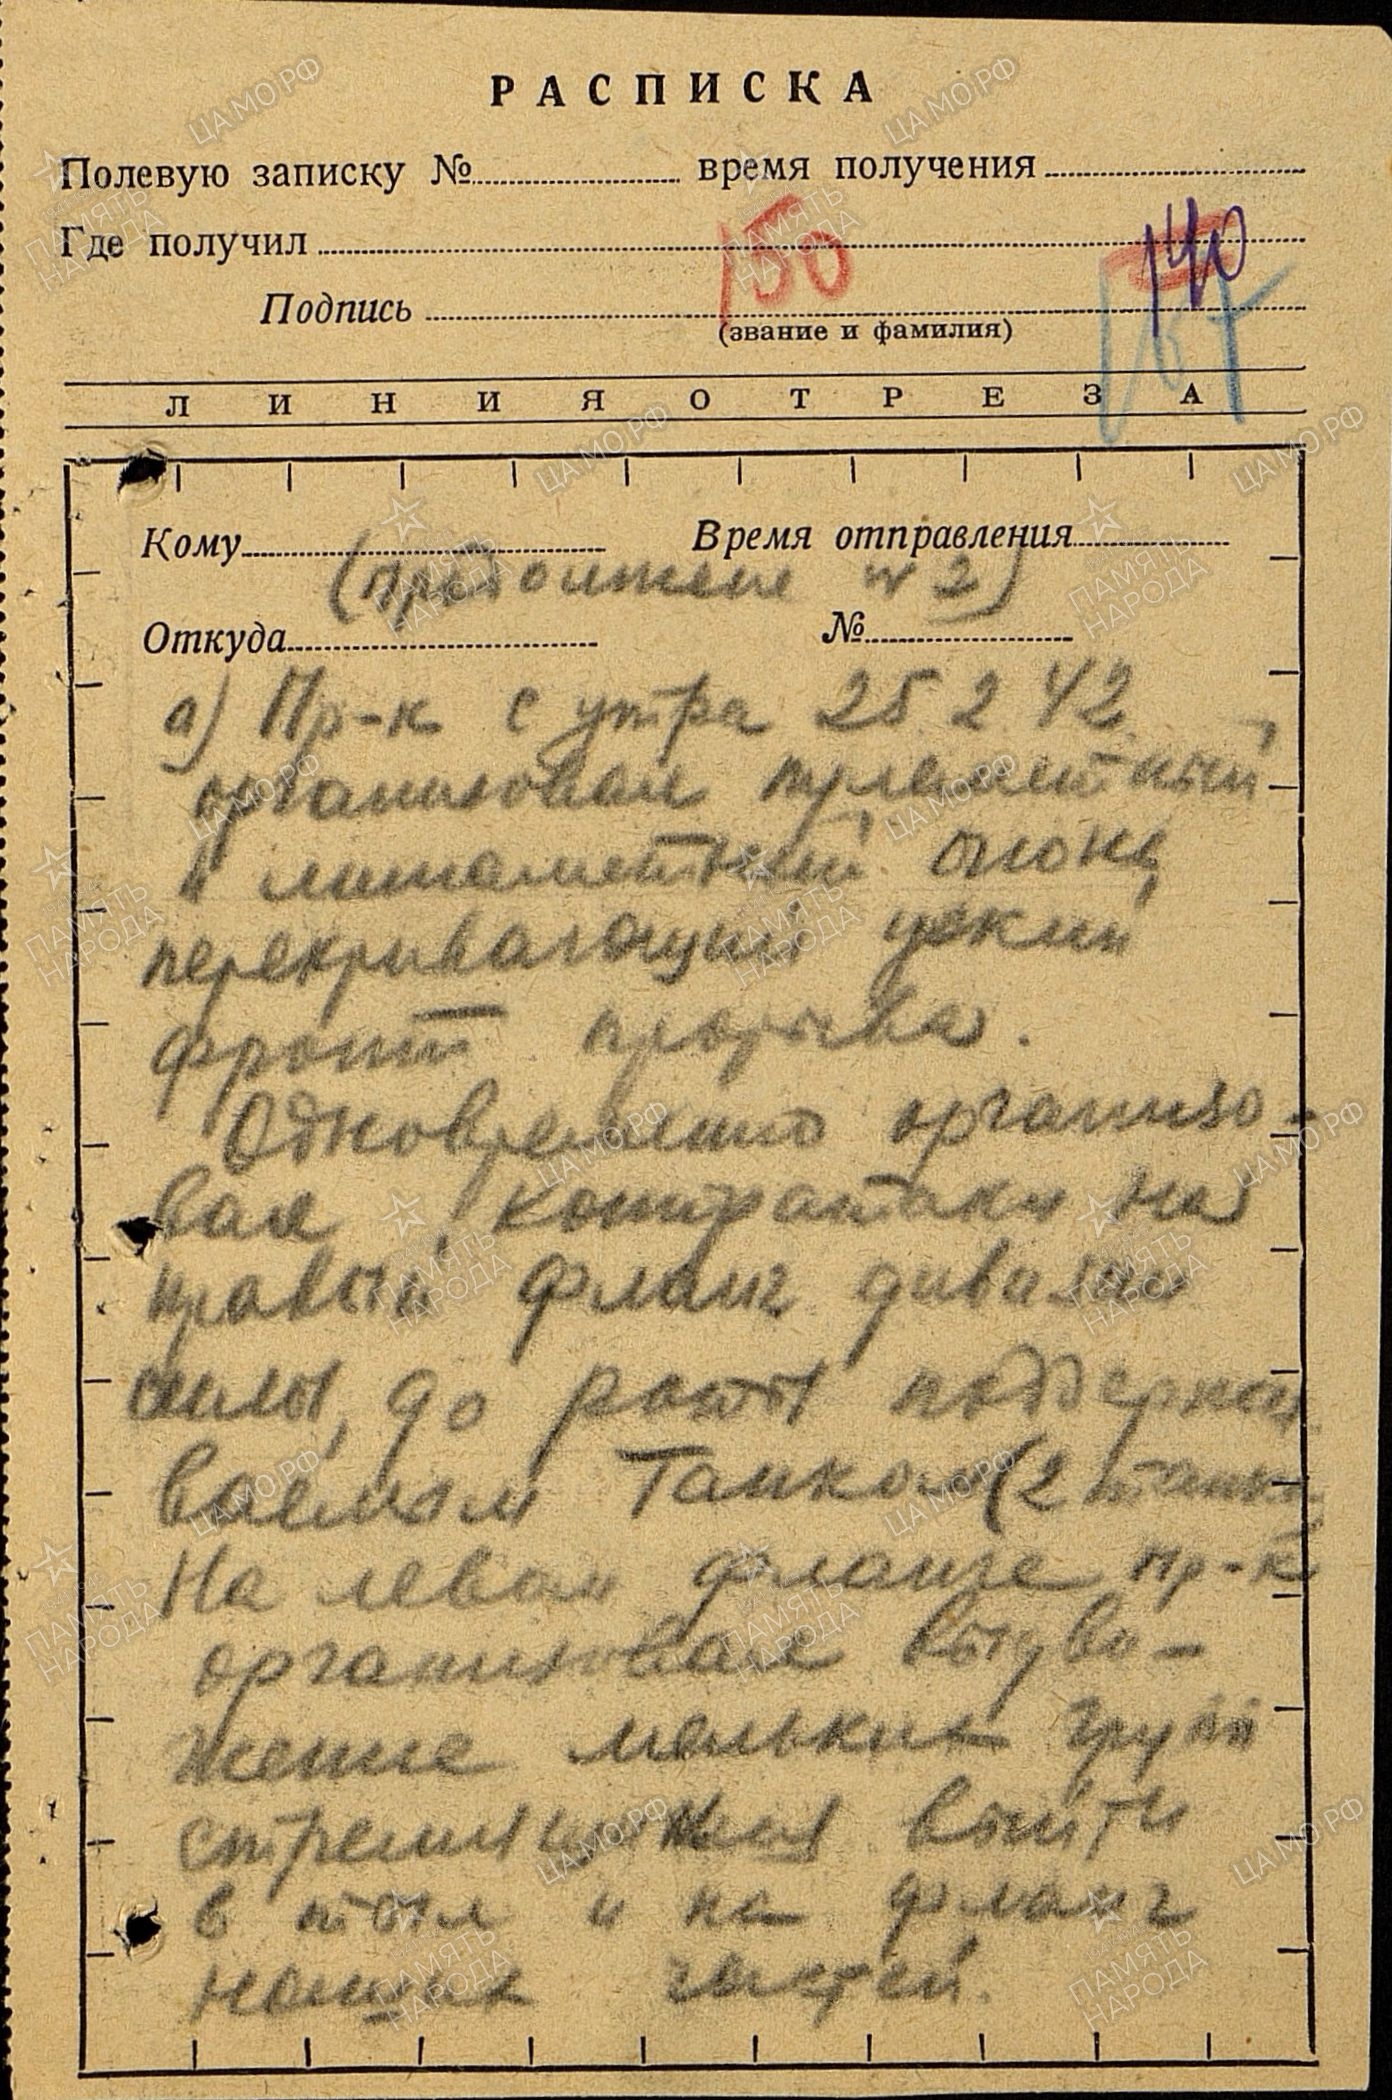 РАСПИСКА
Полевую записку № время получения
Где получил
150
140
Подпись
(звание и фамилия)
ЛИНИЯ ОТРЕЗА
Кому Время отправления
(продолжение № 2)
Откуда №
а) Пр-к с утра 25.2.42
организовал пулеметный
и минометный огонь,
перекривающий узкий
фронт прорыва.
Одновременно организо-
вал контратаки на
правый фланг дивизии
силы, до роты поддержи
ваемой танком (2 танка
На левом фланге пр-к
организовал выдви-
жение мелких групп
стремящихся выйти
в тыл и на фланг
наших частей.
ПАМЯТЬ НАРОДА
ЦАМО.РФ